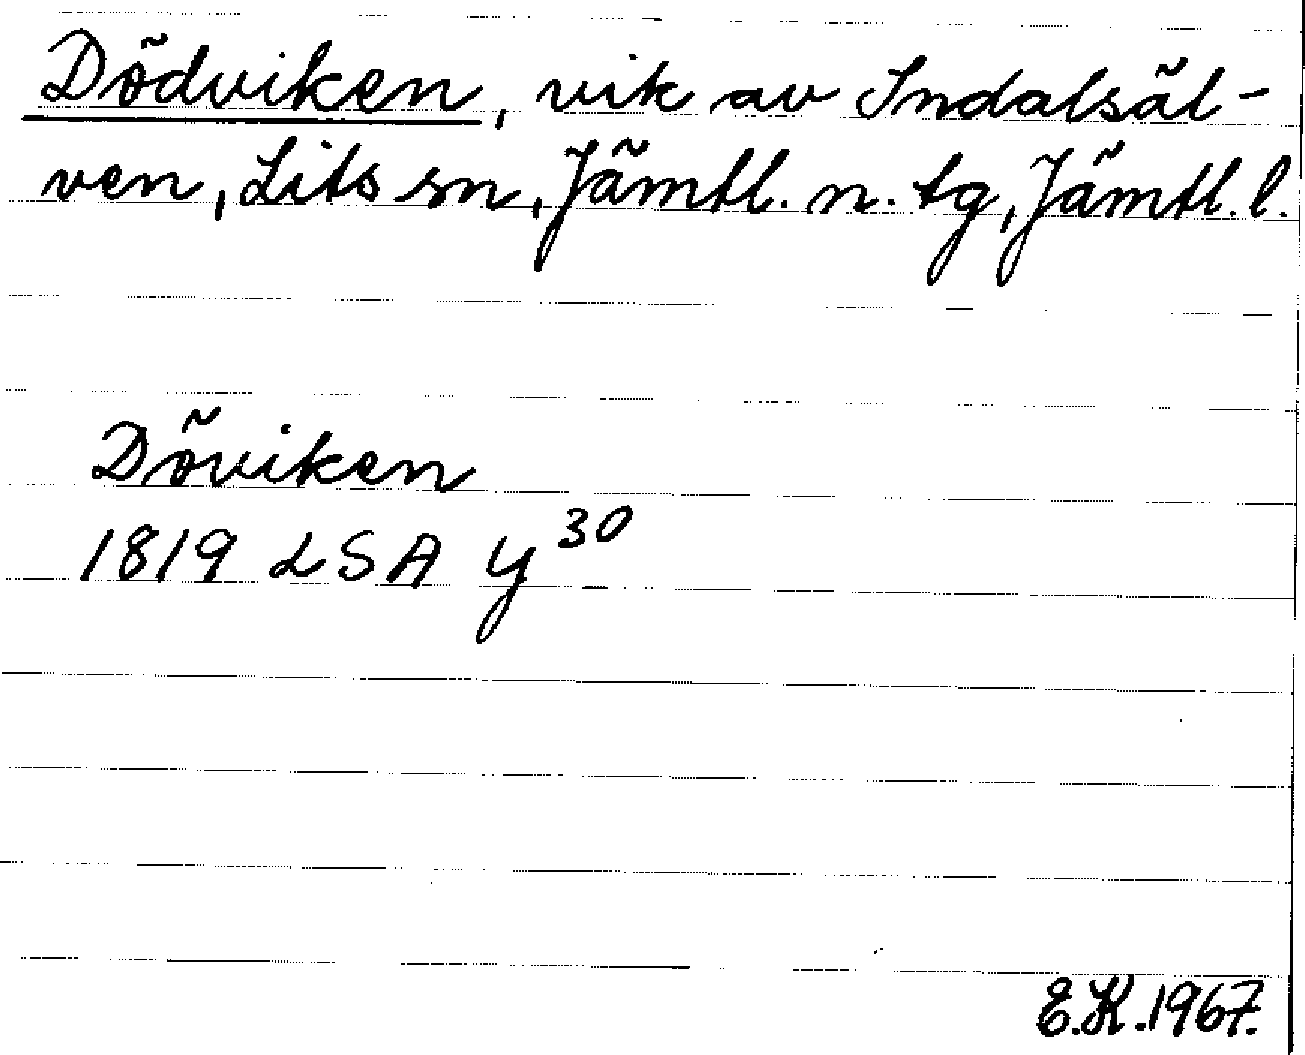 Dödviken, vik av Indalsäl-
ven, Lits sn, Jämtl. n. tg, Jämtl. l.
Döviken
1819 LSA y 30
E.K. 1967.